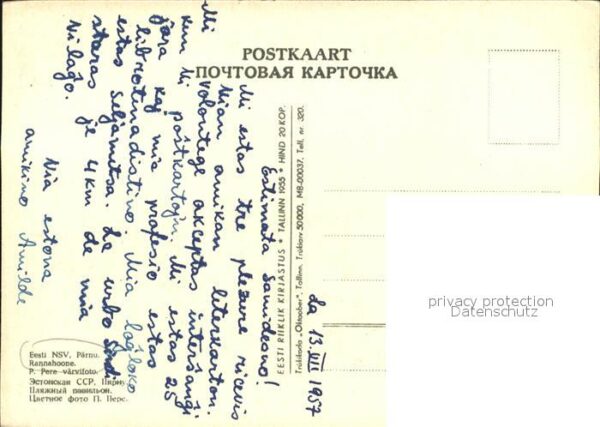 POSTKAART
ПОЧТОВАЯ КАРТОЧКА
la 13. VII 1957
Estimata samideano!
Mi estas tre plezure ricevis
Mian amikan leterkarton.
Volontege akceptas interŝanĝi
kun Mi poŝtkartojn. Mi estas 25
jara kaj mia profesio estas
librotenadistino. Mia loĝloko
estas Seljametsa. La urbo Sindi
staras je 4 km de mia
Ni laĝo.
Via estona
amikino
EESTI RIIKLIK KIRJASTUS * TALLINN 1955 * HIND 20 KOP.
Trükikoda „Oktoober", Tallinn. Trükiarv 50 000, MB-00037, Tell. nr. 320.
Eesti NSV, Pärnu.
Rannahoone.
P. Pere värvifoto.
Эстонская ССР, Пярну.
Пляжный павильон.
Цветное фото П. Пере.
privacy protection
Datenschutz